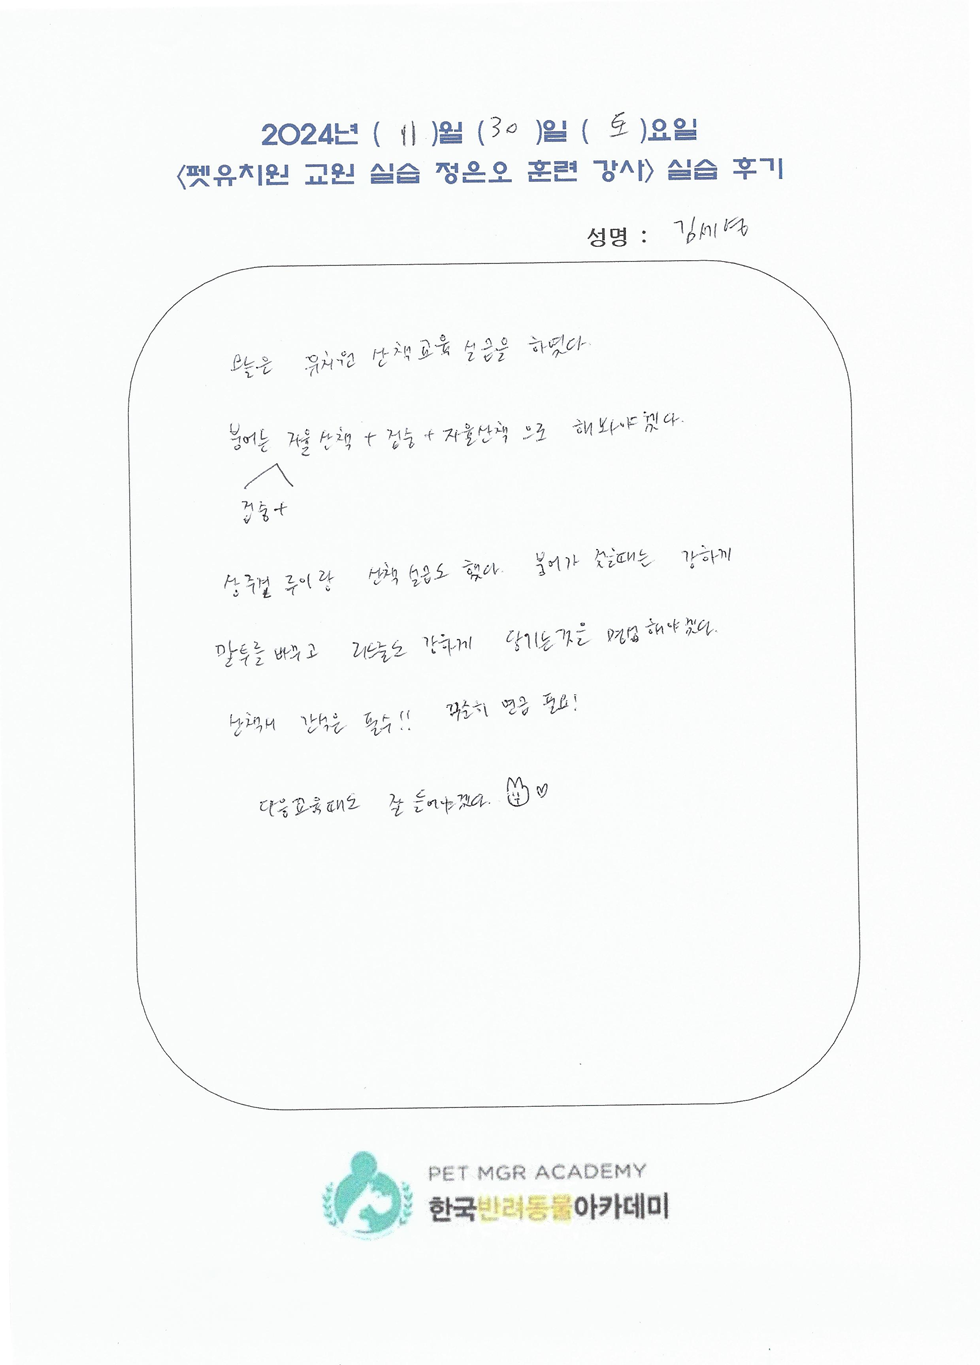 2024년 ( 11 )월 (30 )일 ( 토 )요일
<펫유치원 교원 실습 정은오 훈련 강사> 실습 후기
성명 : 김세영
오늘은 유치원 산책교육 실습을 하였다.
붕어는 자율산책 + 겁승 + 자율산책 으로 해봐야겠다.
겁승+
루이랑 산책실습도 했다. 붕어가 짖을때는 강하게
말투를 바꾸고 리드줄도 강하게 당기는것을 연습해야겠다.
산책시 간식은 필수!! 꾸준히 연습 필요!
다음교육때도 잘 들어야겠다. ♡
PET MGR ACADEMY
한국반려동물아카데미